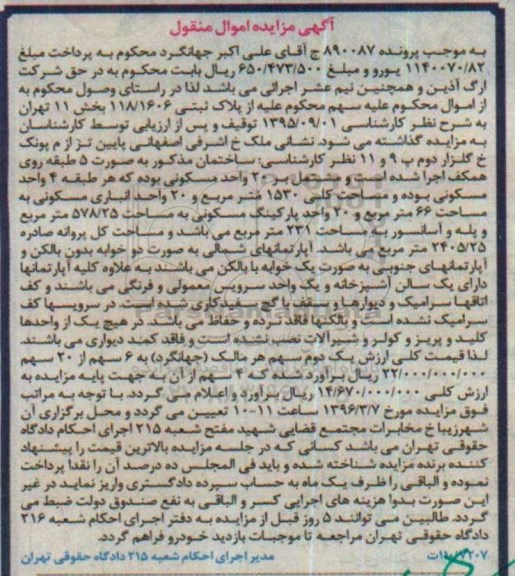 آگهی مزایده اموال منقول
به موجب پرونده ۸۹۰۰۸۷ ج آقای علی اکبر جهانگرد محکوم به پرداخت مبلغ
۱۱۴۰۰۷۰/۸۲ یورو و مبلغ ۶۵۰/۴۷۳/۵۰۰ ریال بابت محکوم به در حق شرکت
ارگ آذین و همچنین نیم عشر اجرائی می باشد لذا در راستای وصول محکوم به
از اموال محکوم علیه سهم محکوم علیه از پلاک ثبتی ۱۱۸/۱۶۰۶ بخش ۱۱ تهران
به شرح نظر کارشناسی ۱۳۹۵/۰۹/۰۱ توقیف و پس از ارزیابی توسط کارشناسان
به مزایده گذاشته می شود. نشانی ملک خ اشرفی اصفهانی پایین تر از م پونک
خ گلزار دوم پ ۹ و ۱۱ نظر کارشناسی: ساختمان مذکور به صورت ۵ طبقه روی
همکف اجرا شده است مشتمل بر ۲۰ واحد مسکونی بوده که هر طبقه ۴ واحد
مسکونی بوده و مساحت کلی ۱۵۳۰ متر مربع و ۲۰ واحد انباری مسکونی به
مساحت ۶۶ متر مربع و ۲۰ واحد پارکینگ مسکونی به مساحت ۵۷۸/۲۵ متر مربع
و پله و آسانسور به مساحت ۲۳۱ متر مربع می باشد و مساحت کل پروانه صادره
۲۴۰۵/۲۵ متر مربع می باشد. آپارتمانهای شمالی به صورت دو خوابه بدون بالکن و
آپارتمانهای جنوبی به صورت یک خوابه با بالکن می باشند به علاوه کلیه آپارتمانها
دارای یک سالن آشپزخانه و یک واحد سرویس معمولی و فرنگی می باشند و کف
اتاقها سرامیک و دیوارها و سقف با گچ سفیدکاری شده است. در سرویسها کف
سرامیک نشده است و بالکنها فاقد نرده و حفاظ می باشد. در هیچ یک از واحدها
کلید و پریز و کولر و شیرآلات نصب نشده است و فاقد کمد دیواری می باشند.
لذا قیمت کلی ارزش یک دوم سهم هر مالک (جهانگرد) به ۶ سهم از ۲۰ سهم
۲۲/۰۰۰/۰۰۰/۰۰۰ ریال برآورد شده که ۴ سهم از آن به جهت پایه مزایده به
ارزش کلی ۱۴/۶۷۰/۰۰۰/۰۰۰ ریال برآورد و اعلام می گردد. با توجه به مراتب
فوق مزایده مورخ ۱۳۹۶/۳/۷ ساعت ۱۱-۱۰ تعیین می گردد و محل برگزاری آن
شهرزیبا خ مخابرات مجتمع قضایی شهید مفتح شعبه ۲۱۵ اجرای احکام دادگاه
حقوقی تهران می باشد کسانی که در جلسه مزایده بالاترین قیمت را پیشنهاد
کننده برنده مزایده شناخته شده و باید فی المجلس ده درصد آن را نقدا پرداخت
نموده و الباقی را ظرف یک ماه به حساب سپرده دادگستری واریز نماید در غیر
این صورت بدوا هزینه های اجرایی کسر و الباقی به نفع صندوق دولت ضبط می
گردد. طالبین می توانند ۵ روز قبل از مزایده به دفتر اجرای احکام شعبه ۲۱۶
دادگاه حقوقی تهران مراجعه تا موجبات بازدید خودرو فراهم گردد.
مدیر اجرای احکام شعبه ۲۱۵ دادگاه حقوقی تهران